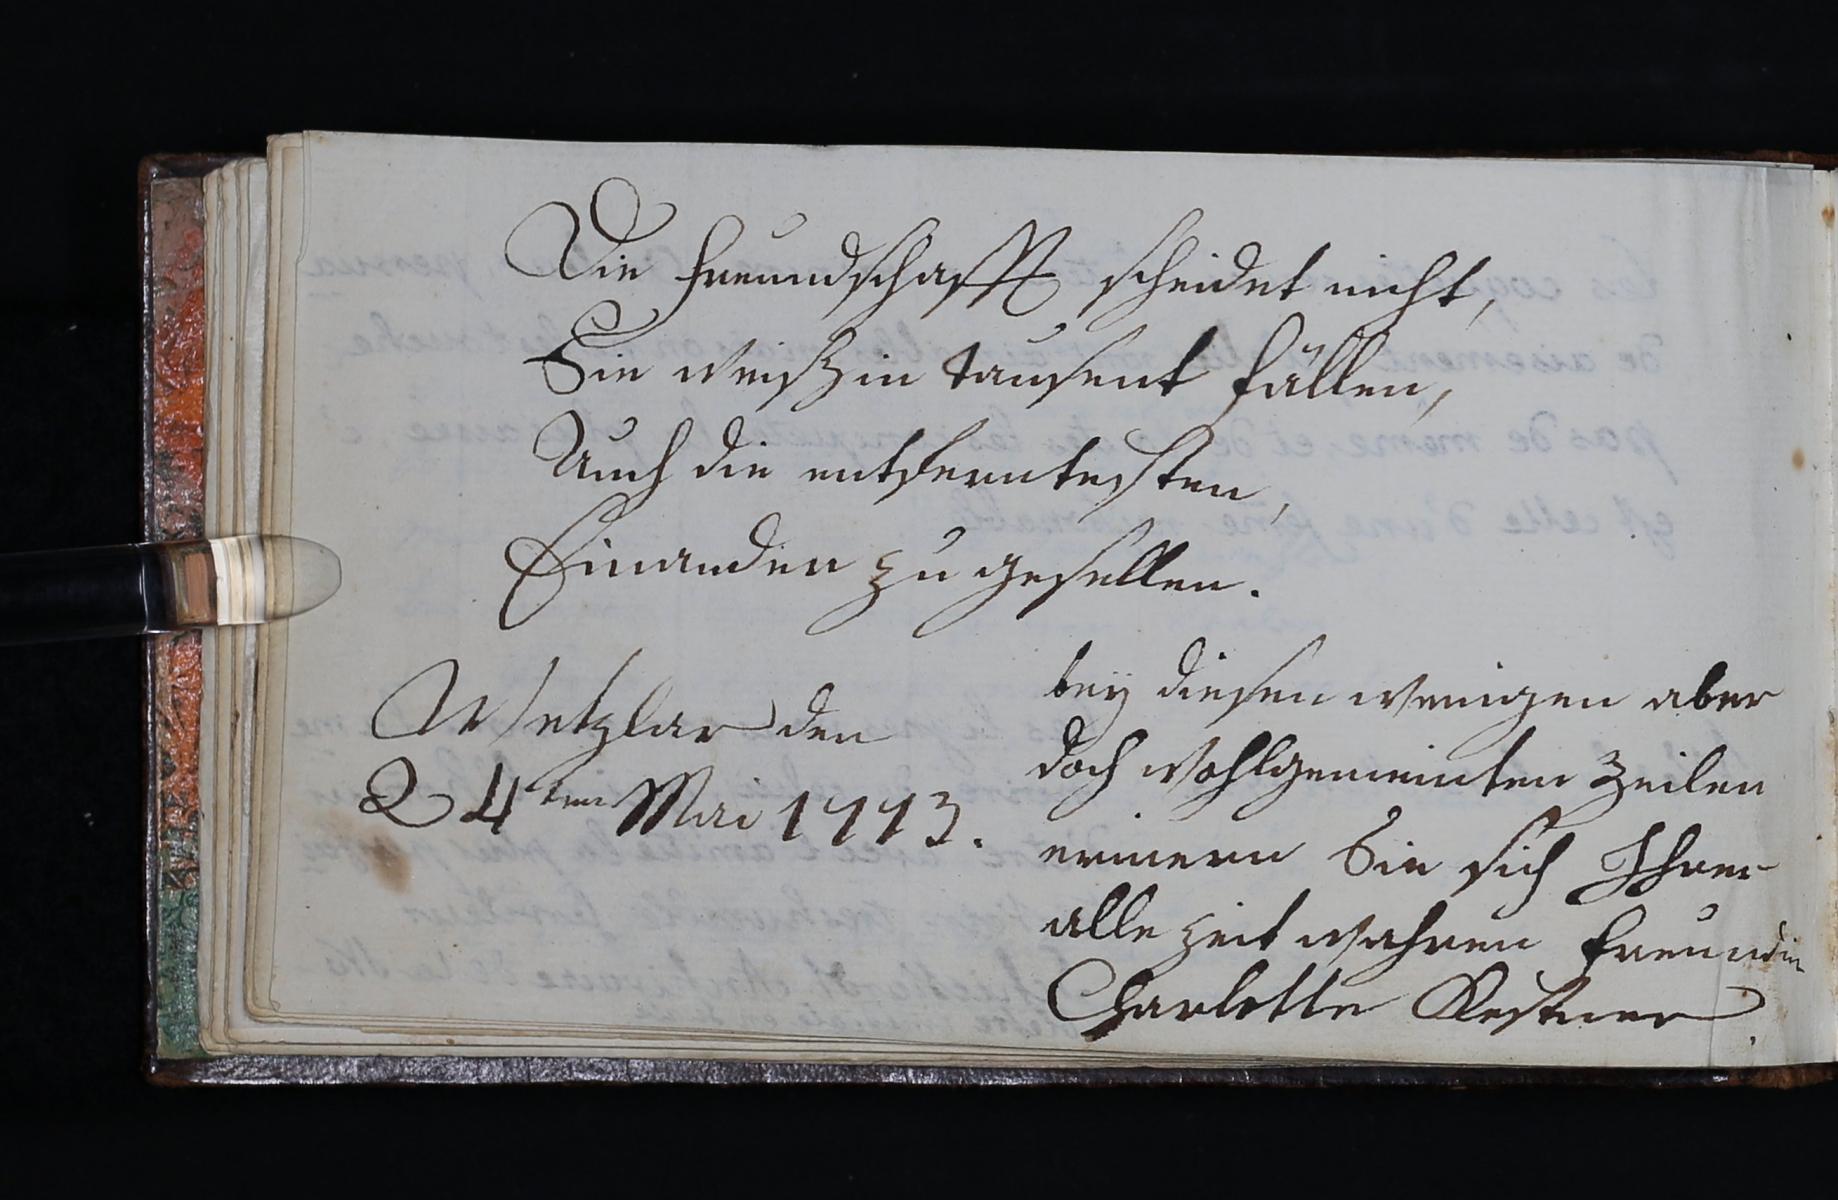 Die Freundschafft scheidet nicht,
Sie weiß in tausent Fällen,
Auch die entferntesten,
Einander zu gesellen.
Wetzlar den
24ten Mai 1773.
bey diesen wenigen aber
doch wohlgemeinten Zeilen
erinern Sie sich Ihrer
alle zeit wahren Freundin
Charlotte Kestner.